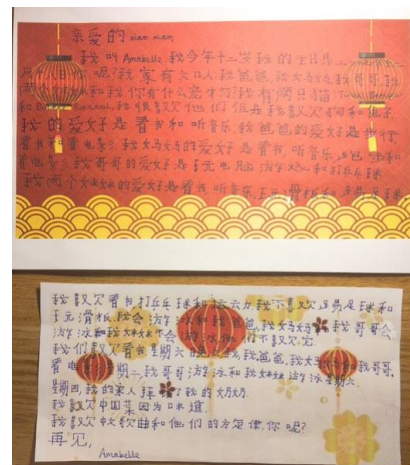 亲爱的 xiao xiao,
我叫 Amabelle 我今年十二岁 我的生日是二
月 日 呢?我家有六口人 我爸爸, 我妈妈, 我哥哥, 我
两个妹妹和我 你有什么宠物?我有两只猫
和 我很喜欢他们 但是我喜欢狗和兔子.
我的爱好是看书和听音乐. 我爸爸的爱好是步行,
看书和看电影. 我妈妈的爱好是看书, 听音乐, 和
看电影. 我哥哥的爱好是玩电脑游戏, 和打乒乓球.
我两个妹妹的爱好是看书, 听音乐, 玩滑板和踢足球
我喜欢看书 打乒乓球和运动. 我不喜欢踢足球和
玩滑板. 我会游泳和我爸爸, 我妈妈, 我哥哥会
游泳和我妹妹不会游泳 他们不喜欢它.
我们喜欢看书. 星期六 我爸爸, 我妈 和我哥哥,
看电 期二, 我哥哥游泳和我妹妹游泳. 星期六.
星期四, 我的家人 了我的奶奶.
我喜欢中国菜 因为 味道.
我喜欢中文歌曲和他们的 你呢?
再见,
Amabelle